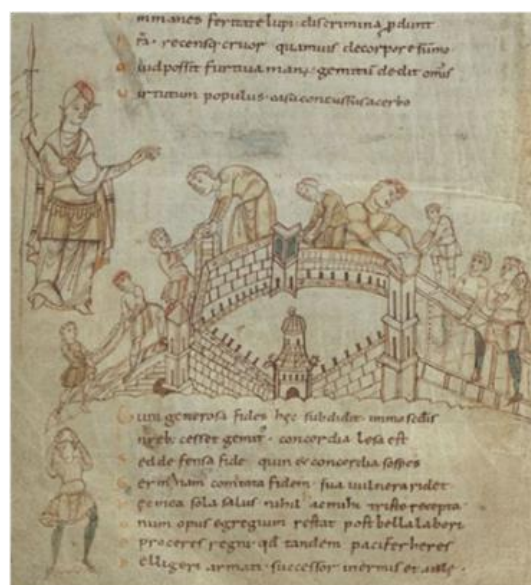 nmanes feritate lupi discrimina pdunt
recensq; cruor quamuis decorpore sūmo
uid possit furtiua man; gemitū dedit omīs
u irtutum populus casu concussus acerbo
generosa fides hęc subdidit immo
cesset gemit; concordia lesa est
s ed defensa fides quin & concordia sospes
g ermanam comitata fidem sua vulnera ridet
mea sola salus nihil ac mihi triste recepta
u num opus egregium restat post bella labori
proceres regni qd tandem pacifer heres
b elligeri armatę successor inermis et aulę